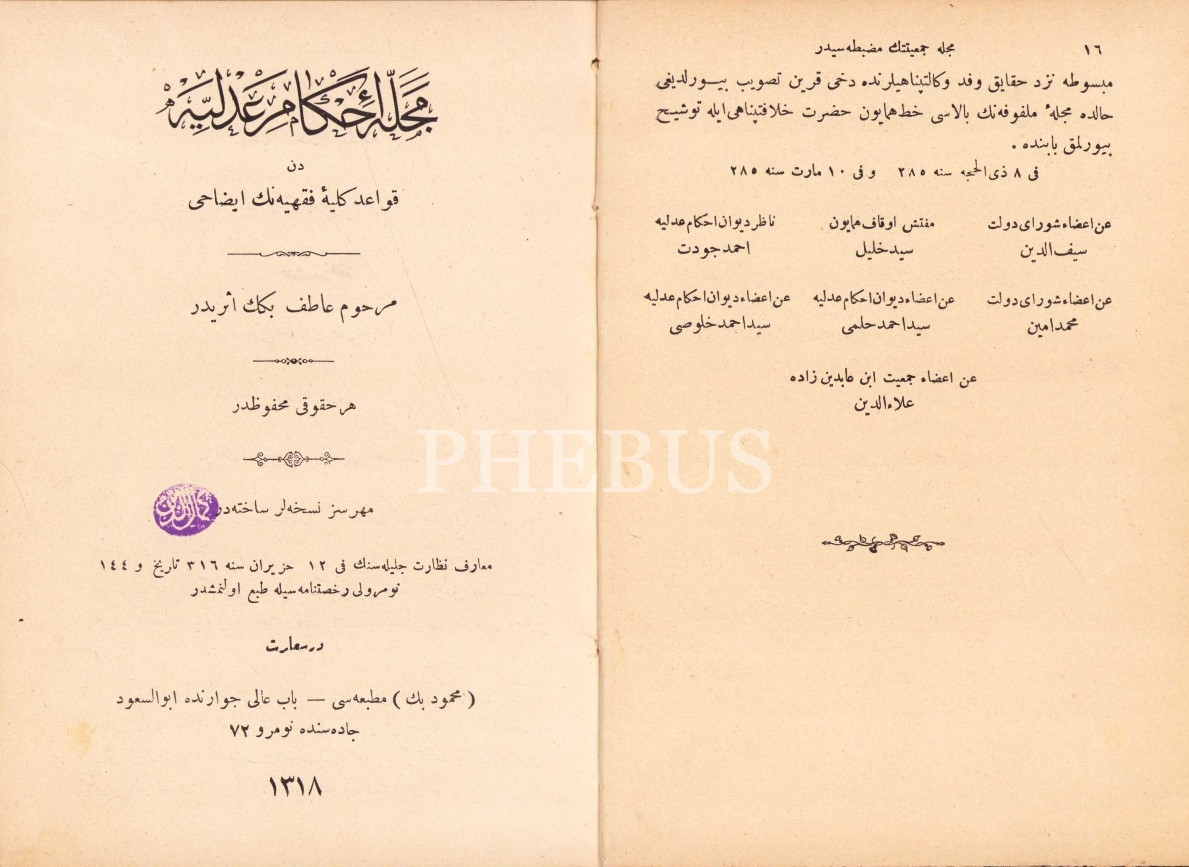 ١٦ مجله جمعيتنك مضبطه سيدر
مبسوطه نزد حقايق وفد وكالتپناهيلرنده دخى قرين تصويب بيورلديغى
حالده مجلهٔ ملفوفه‌نك بالاسى خط همايون حضرت خلافتپناهى ايله توشيح
بيورلمق بابنده .
فى ٨ ذى الحجه سنه ٢٨٥ و فى ١٠ مارت سنه ٢٨٥
عن اعضاء شوراى دولت مفتش اوقاف همايون ناظر ديوان احكام عدليه
سيف الدين سيد خليل احمد جودت
عن اعضاء شوراى دولت عن اعضاء ديوان احكام عدليه عن اعضاء ديوان احكام عدليه
محمد امين سيد احمد حلمى سيد احمد خلوصى
عن اعضاء جمعيت ابن عابدين زاده
علاء الدين
مجلهٔ احكام عدليه
دن
قواعد كليهٔ فقهيه نك ايضاحى
مرحوم عاطف بكك اثريدر
هر حقوقى محفوظدر
مهرسز نسخه لر ساخته در
معارف نظارت جليله سنك فى ١٢ حزيران سنه ٣١٦ تاريخ و ١٤٤
نومرولى رخصتنامه سيله طبع اولنمشدر
در سعادت
( محمود بك ) مطبعه سى — باب عالى جوارنده ابو السعود
جاده سنده نومرو ٧٢
١٣١٨
PHEBUS